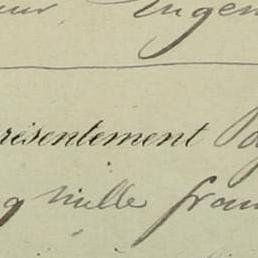 eur Eugen
résentement Pa
q mille fran